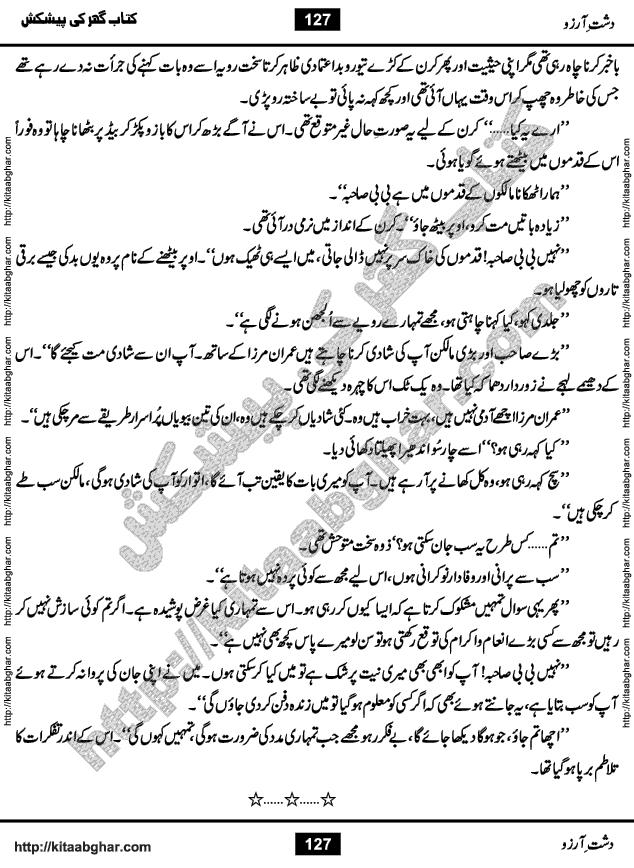 دشتِ آرزو
127
کتاب گھر کی پیشکش
باخبر کرنا چاہ رہی تھی مگر اپنی حیثیت اور پھر کرن کے کڑے تیور و بداعتمادی ظاہر کرتا سخت رویہ اسے وہ بات کہنے کی جرأت نہ دے رہے تھے
جس کی خاطر وہ چھپ کر اس وقت یہاں آئی تھی اور کچھ کہہ نہ پائی تو بے ساختہ رو پڑی۔
’’ارے یہ کیا......‘‘ کرن کے لیے یہ صورتِ حال غیر متوقع تھی۔ اس نے آگے بڑھ کر اس کا بازو پکڑ کر بیڈ پر بٹھانا چاہا تو وہ فوراً
اس کے قدموں میں بیٹھتے ہوئے گویا ہوئی۔
’’ہمارا ٹھکانا مالکوں کے قدموں میں ہے بی بی صاحبہ‘‘۔
’’زیادہ باتیں مت کرو، اوپر بیٹھ جاؤ‘‘۔ کرن کے انداز میں نرمی در آئی تھی۔
’’نہیں بی بی صاحبہ! قدموں کی خاک سر پر نہیں ڈالی جاتی، میں ایسے ہی ٹھیک ہوں‘‘۔ اوپر بیٹھنے کے نام پر وہ یوں بدکی جیسے برقی
تاروں کو چھو لیا ہو۔
’’جلدی کہو، کیا کہنا چاہتی ہو، مجھے تمہارے رویے سے اُلجھن ہونے لگی ہے‘‘۔
’’بڑے صاحب اور بڑی مالکن آپ کی شادی کرنا چاہتے ہیں عمران مرزا کے ساتھ۔ آپ ان سے شادی مت کیجئے گا‘‘۔ اس
کے دھیمے لہجے نے زوردار دھماکہ کیا تھا۔ وہ یک ٹک اس کا چہرہ دیکھنے لگی تھی۔
’’عمران مرزا اچھے آدمی نہیں ہیں، بہت خراب ہیں وہ۔ کئی شادیاں کر چکے ہیں وہ، ان کی تین بیویاں پُراسرار طریقے سے مر چکی ہیں‘‘۔
’’کیا کہہ رہی ہو؟‘‘ اسے چار سُو اندھیرا پھیلتا دکھائی دیا۔
’’سچ کہہ رہی ہوں، وہ کل کھانے پر آ رہے ہیں۔ آپ کو میری بات کا یقین تب آئے گا، اتوار کو آپ کی شادی ہوگی، مالکن سب طے
کر چکی ہیں‘‘۔
’’تم...... کس طرح یہ سب جان سکتی ہو؟‘‘ وہ سخت متوحش تھی۔
’’سب سے پرانی اور وفادار نوکرانی ہوں، اس لیے مجھ سے کوئی پردہ نہیں ہوتا ہے‘‘۔
’’پھر یہی سوال تمہیں مشکوک کرتا ہے کہ ایسا کیوں کر رہی ہو۔ اس سے تمہاری کیا غرض پوشیدہ ہے۔ اگر تم کوئی سازش نہیں کر
رہیں تو مجھ سے کسی بڑے انعام و اکرام کی توقع رکھتی ہو تو سن لو میرے پاس کچھ بھی نہیں ہے‘‘۔
’’نہیں بی بی صاحبہ! آپ کو ابھی بھی میری نیت پر شک ہے تو میں کیا کر سکتی ہوں۔ میں نے اپنی جان کی پروا نہ کرتے ہوئے
آپ کو سب بتایا ہے، یہ جانتے ہوئے بھی کہ اگر کسی کو معلوم ہو گیا تو میں زندہ دفن کر دی جاؤں گی‘‘۔
’’اچھا تم جاؤ، جو ہوگا دیکھا جائے گا، بے فکر رہو مجھے جب تمہاری مدد کی ضرورت ہوگی، تمہیں کہوں گی‘‘۔ اس کے اندر تفکرات کا
تلاطم برپا ہو گیا تھا۔
☆......☆......☆
کتاب گھر کی پیشکش
http://kitaabghar.com
http://kitaabghar.com
http://kitaabghar.com
http://kitaabghar.com
http://kitaabghar.com
http://kitaabghar.com
http://kitaabghar.com
http://kitaabghar.com
http://kitaabghar.com
http://kitaabghar.com
http://kitaabghar.com
http://kitaabghar.com
http://kitaabghar.com
http://kitaabghar.com
127
دشتِ آرزو